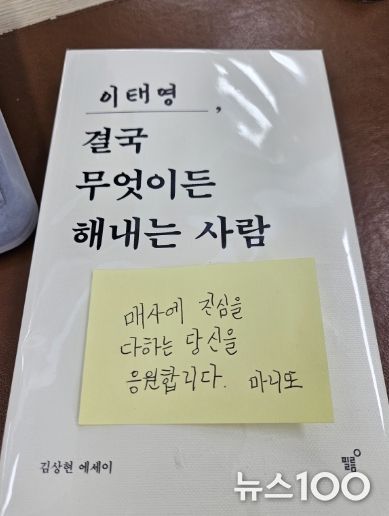 이태영,
결국
무엇이든
해내는 사람
매사에 진심을
다하는 당신을
응원합니다. 마니또
김상현 에세이
필름
뉴스100